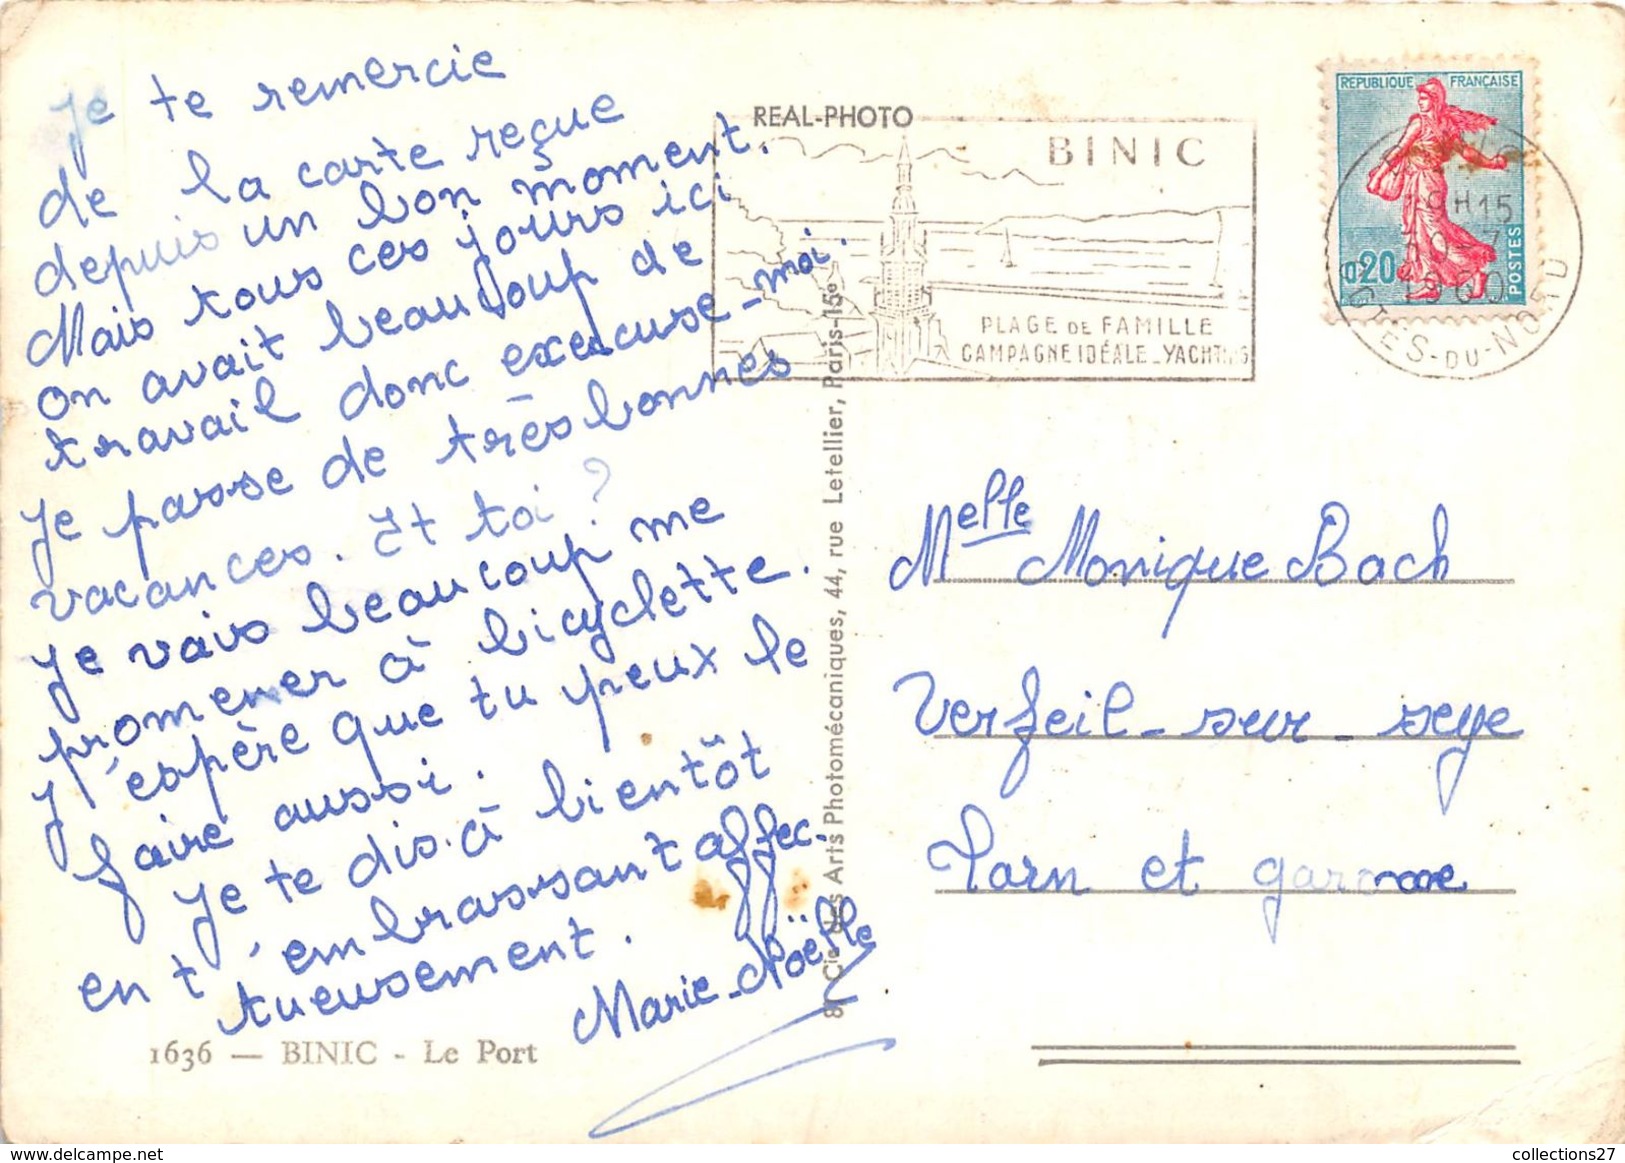 Je te remercie
de la carte reçue
depuis un bon moment.
Mais tous ces jours ici
on avait beaucoup de
travail donc excuse-moi.
Je passe de très bonnes
vacances. Et toi ?
Je vais beaucoup me
promener à bicyclette.
J'espère que tu peux le
faire aussi.
Je te dis à bientôt
en t'embrassant affec-
tueusement.
Marie-Noëlle
1636 — BINIC - Le Port
REAL-PHOTO
BINIC
PLAGE DE FAMILLE
CAMPAGNE IDÉALE_YACHTING
Cie des Arts Photomécaniques, 44, rue Letellier, Paris-15e
REPUBLIQUE FRANÇAISE
0,20
POSTES
H15
1960
COTES-DU-NORD
Melle Monique Bach
Verfeil-sur-seye
Tarn et garonne
collections27